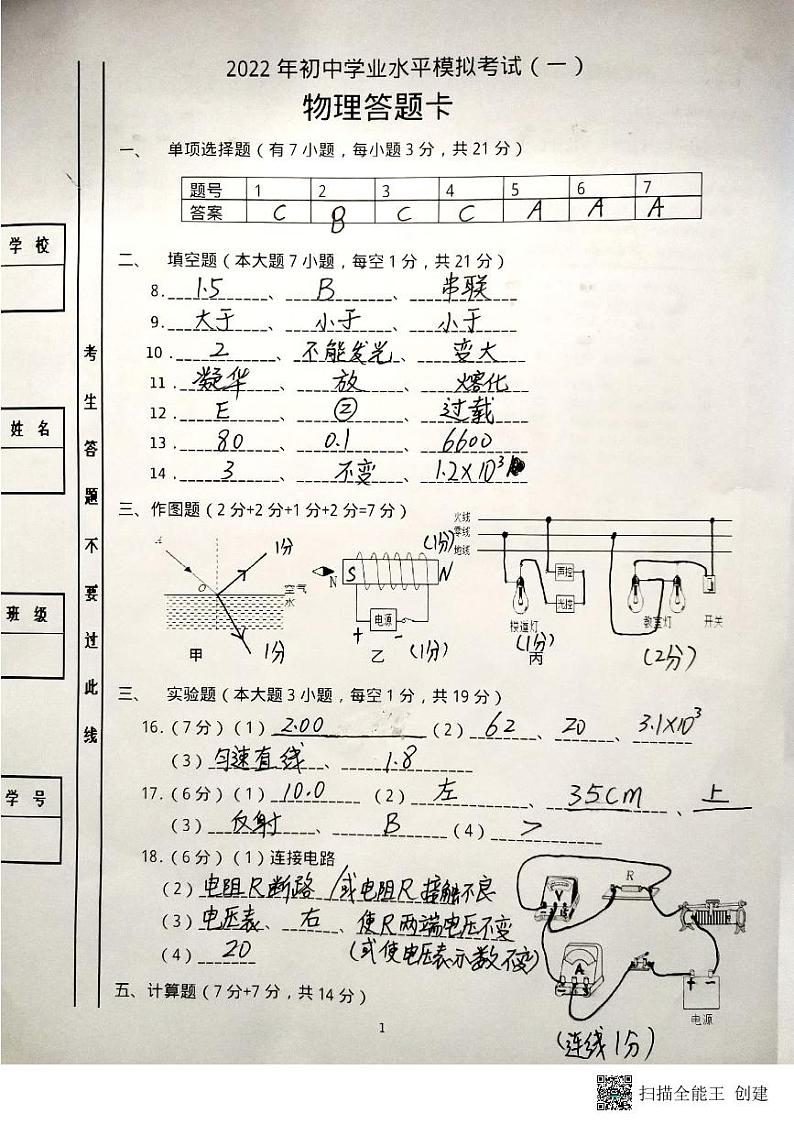 2022年初中学业水平模拟考试(一)
物理答题卡
一、 单项选择题(有7小题,每小题3分,共21分)
题号 1 2 3 4 5 6 7
答案 C B C C A A A
二、 填空题(本大题7小题,每空1分,共21分)
8. 1.5 、 B 、 串联
9. 大于 、 小于 、 小于
10. 2 、 不能发光 、 变大
11. 凝华 、 放 、 熔化
12. E 、 ② 、 过载
13. 80 、 0.1 、 6600
14. 3 、 不变 、 1.2×10³
三、作图题(2分+2分+1分+2分=7分)
A O 1分 空气 水 1分 甲
N S N (1分) + 电源 - 乙 (1分)
火线
零线
地线
声控 光控 楼道灯 (1分) 丙
教室灯 开关 (2分)
三、 实验题(本大题3小题,每空1分,共19分)
16.(7分)(1) 2.00 (2) 62 、 20 、 3.1×10³
(3) 匀速直线 、 1.8
17.(6分)(1) 10.0 (2) 左 、 35cm 、 上
(3) 反射 、 B (4) >
18.(6分)(1)连接电路
(2) 电阻R断路/或电阻R接触不良
(3) 电压表 、 右 、 使R两端电压不变
(或使电压表示数不变)
(4) 20
R
V
A
+ -
电源
(连线1分)
五、计算题(7分+7分,共14分)
1
学校
姓名
班级
学号
考生答题不要过此线
扫描全能王 创建